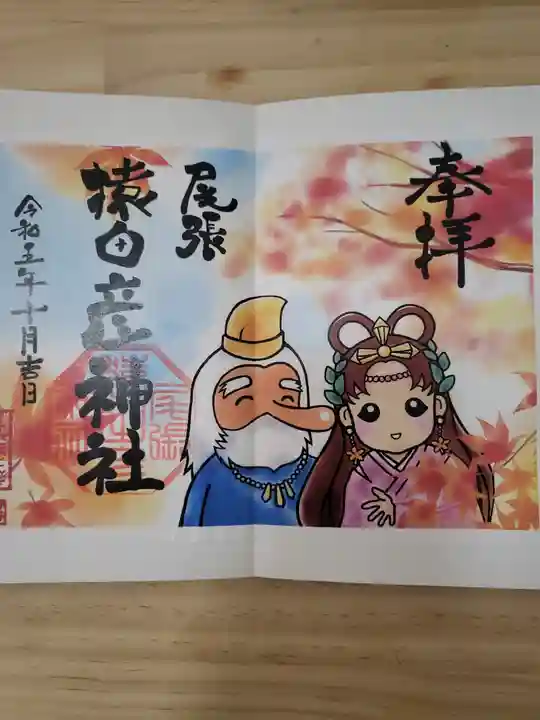 奉拝
尾張
猿田彦神社
令和五年十月吉日